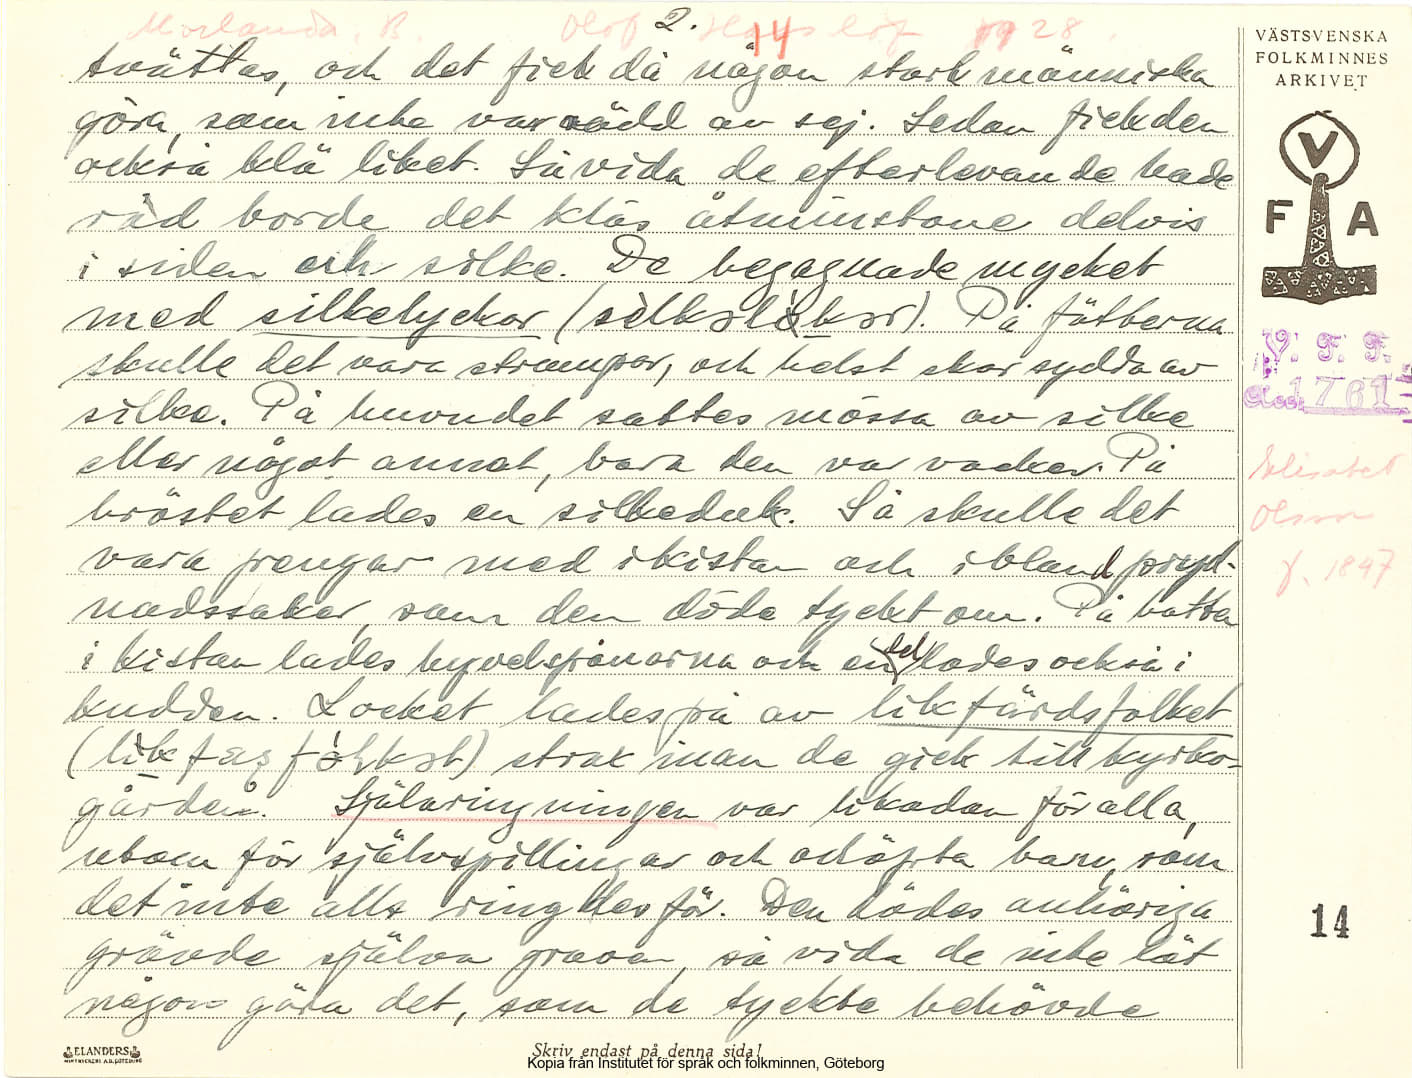 2.
Morlanda, B. Olof Hasslöf 1928.
14
tvättas, och det fick då någon stark människa
göra, som inte var rädd av sej. Sedan fick den
också klä liket. Så vida de efterlevande hade
råd borde det kläs åtminstone delvis
i siden och silke. De begagnade mycket
med silkelyckor (
). På fötterna
skulle det vara strumpor, och helst skor sydda av
silke. På huvudet sattes mössa av silke
eller något annat, bara den var vacker. På
bröstet lades en silkeduk. Så skulle det
vara pengar med i kistan och ibland pryd-
nadssaker, som den döde tyckt om. På botten
i kistan lades hyvelspånorna och en del lades också i
kudden. Locket lades på av likfärdsfolket
(
) strax innan de gick till kyrko-
gården. Själaringningen var likadan för alla,
utom för självspillingar och odöpta barn, som
det inte alls ringdes för. Den dödes anhöriga
grävde själva graven, så vida de inte lät
någon göra det, som de tyckte behövde
VÄSTSVENSKA
FOLKMINNES
ARKIVET
V
F A
V. F. F.
Acc. 1761
Elisabet
Olsson
f. 1847
14
ELANDERS
Skriv endast på denna sida!
Kopia från Institutet för språk och folkminnen, Göteborg